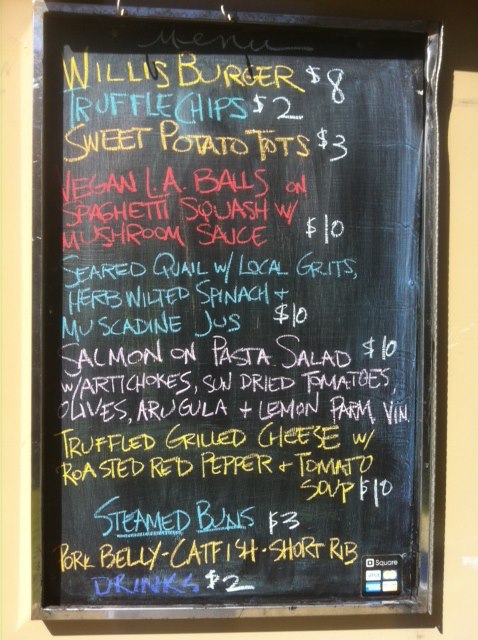 Menu
WILLIS BURGER $8
TRUFFLE CHIPS $2
SWEET POTATO TOTS $3
VEGAN L.A. BALLS ON
SPAGHETTI SQUASH W/
MUSHROOM SAUCE $10
SEARED QUAIL W/ LOCAL GRITS,
HERB WILTED SPINACH +
MUSCADINE JUS $10
SALMON ON PASTA SALAD $10
W/ARTICHOKES, SUN DRIED TOMATOES,
OLIVES, ARUGULA + LEMON PARM. VIN.
TRUFFLED GRILLED CHEESE W/
ROASTED RED PEPPER + TOMATO
SOUP $10
STEAMED BUNS $3
PORK BELLY - CATFISH - SHORT RIB
DRINKS $2
Square
VISA